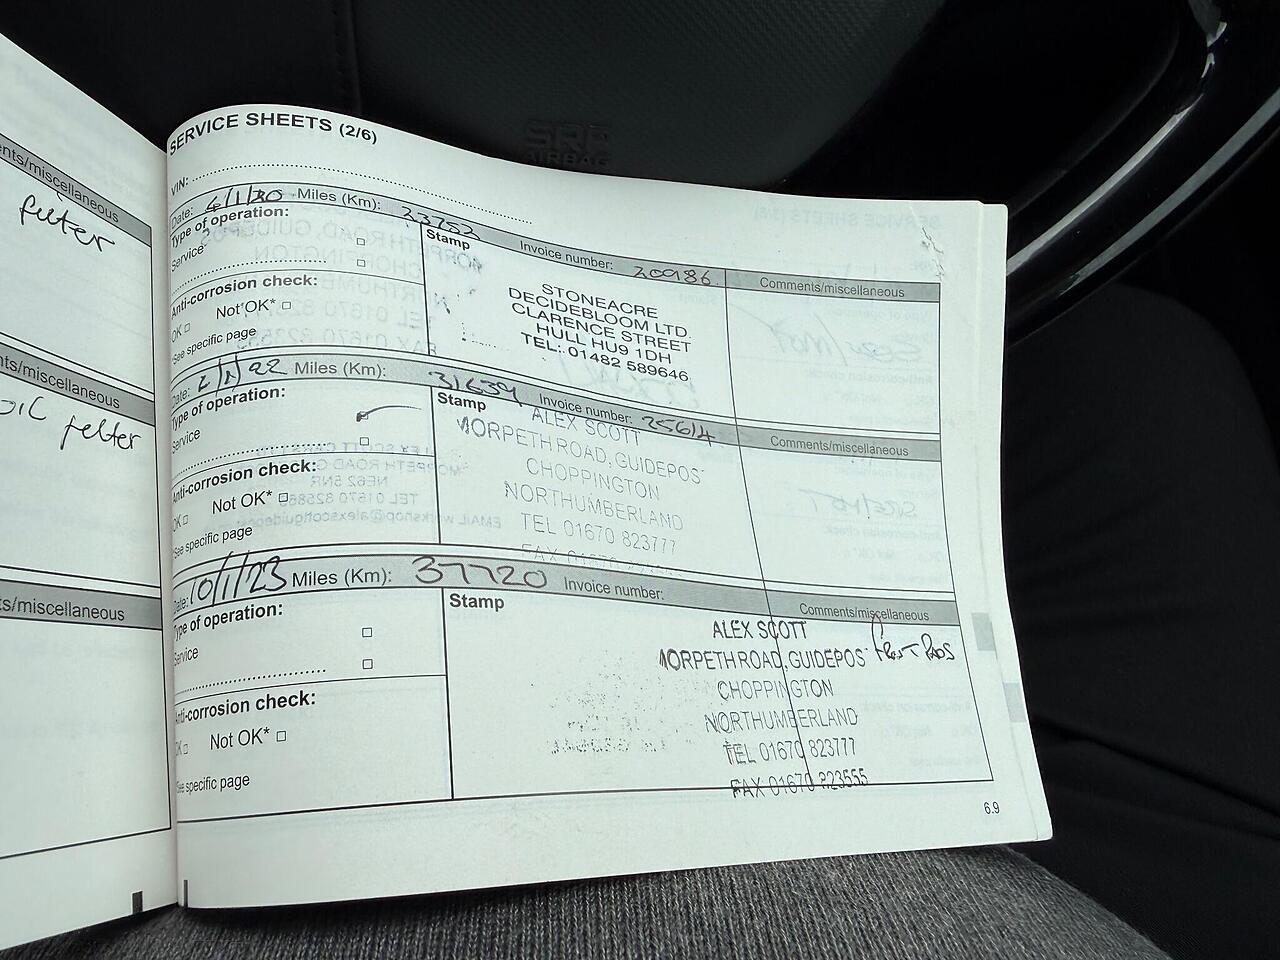 SERVICE SHEETS (2/6)
VIN:
Date: 6/1/20 Miles (Km): 23752
Type of operation:
Service
Stamp
Invoice number: 20986
Comments/miscellaneous
STONEACRE
DECIDEBLOOM LTD
CLARENCE STREET
HULL HU9 1DH
TEL: 01482 589646
Anti-corrosion check:
OK Not OK*
*See specific page
Date: 2/1/22 Miles (Km): 31639
Type of operation:
Service
Stamp
Invoice number: 25614
Comments/miscellaneous
ALEX SCOTT
MORPETH ROAD, GUIDEPOS
CHOPPINGTON
NORTHUMBERLAND
TEL 01670 823777
FAX 01670
Anti-corrosion check:
OK Not OK*
*See specific page
Date: 10/1/23 Miles (Km): 37720
Type of operation:
Service
Stamp
Invoice number:
Comments/miscellaneous
ALEX SCOTT
MORPETH ROAD, GUIDEPOS
CHOPPINGTON
NORTHUMBERLAND
TEL 01670 823777
FAX 01670 823555
Front Pads
Anti-corrosion check:
OK Not OK*
*See specific page
6.9
nts/miscellaneous
felter
nts/miscellaneous
oiC felter
ts/miscellaneous
SRP
AIRBAG